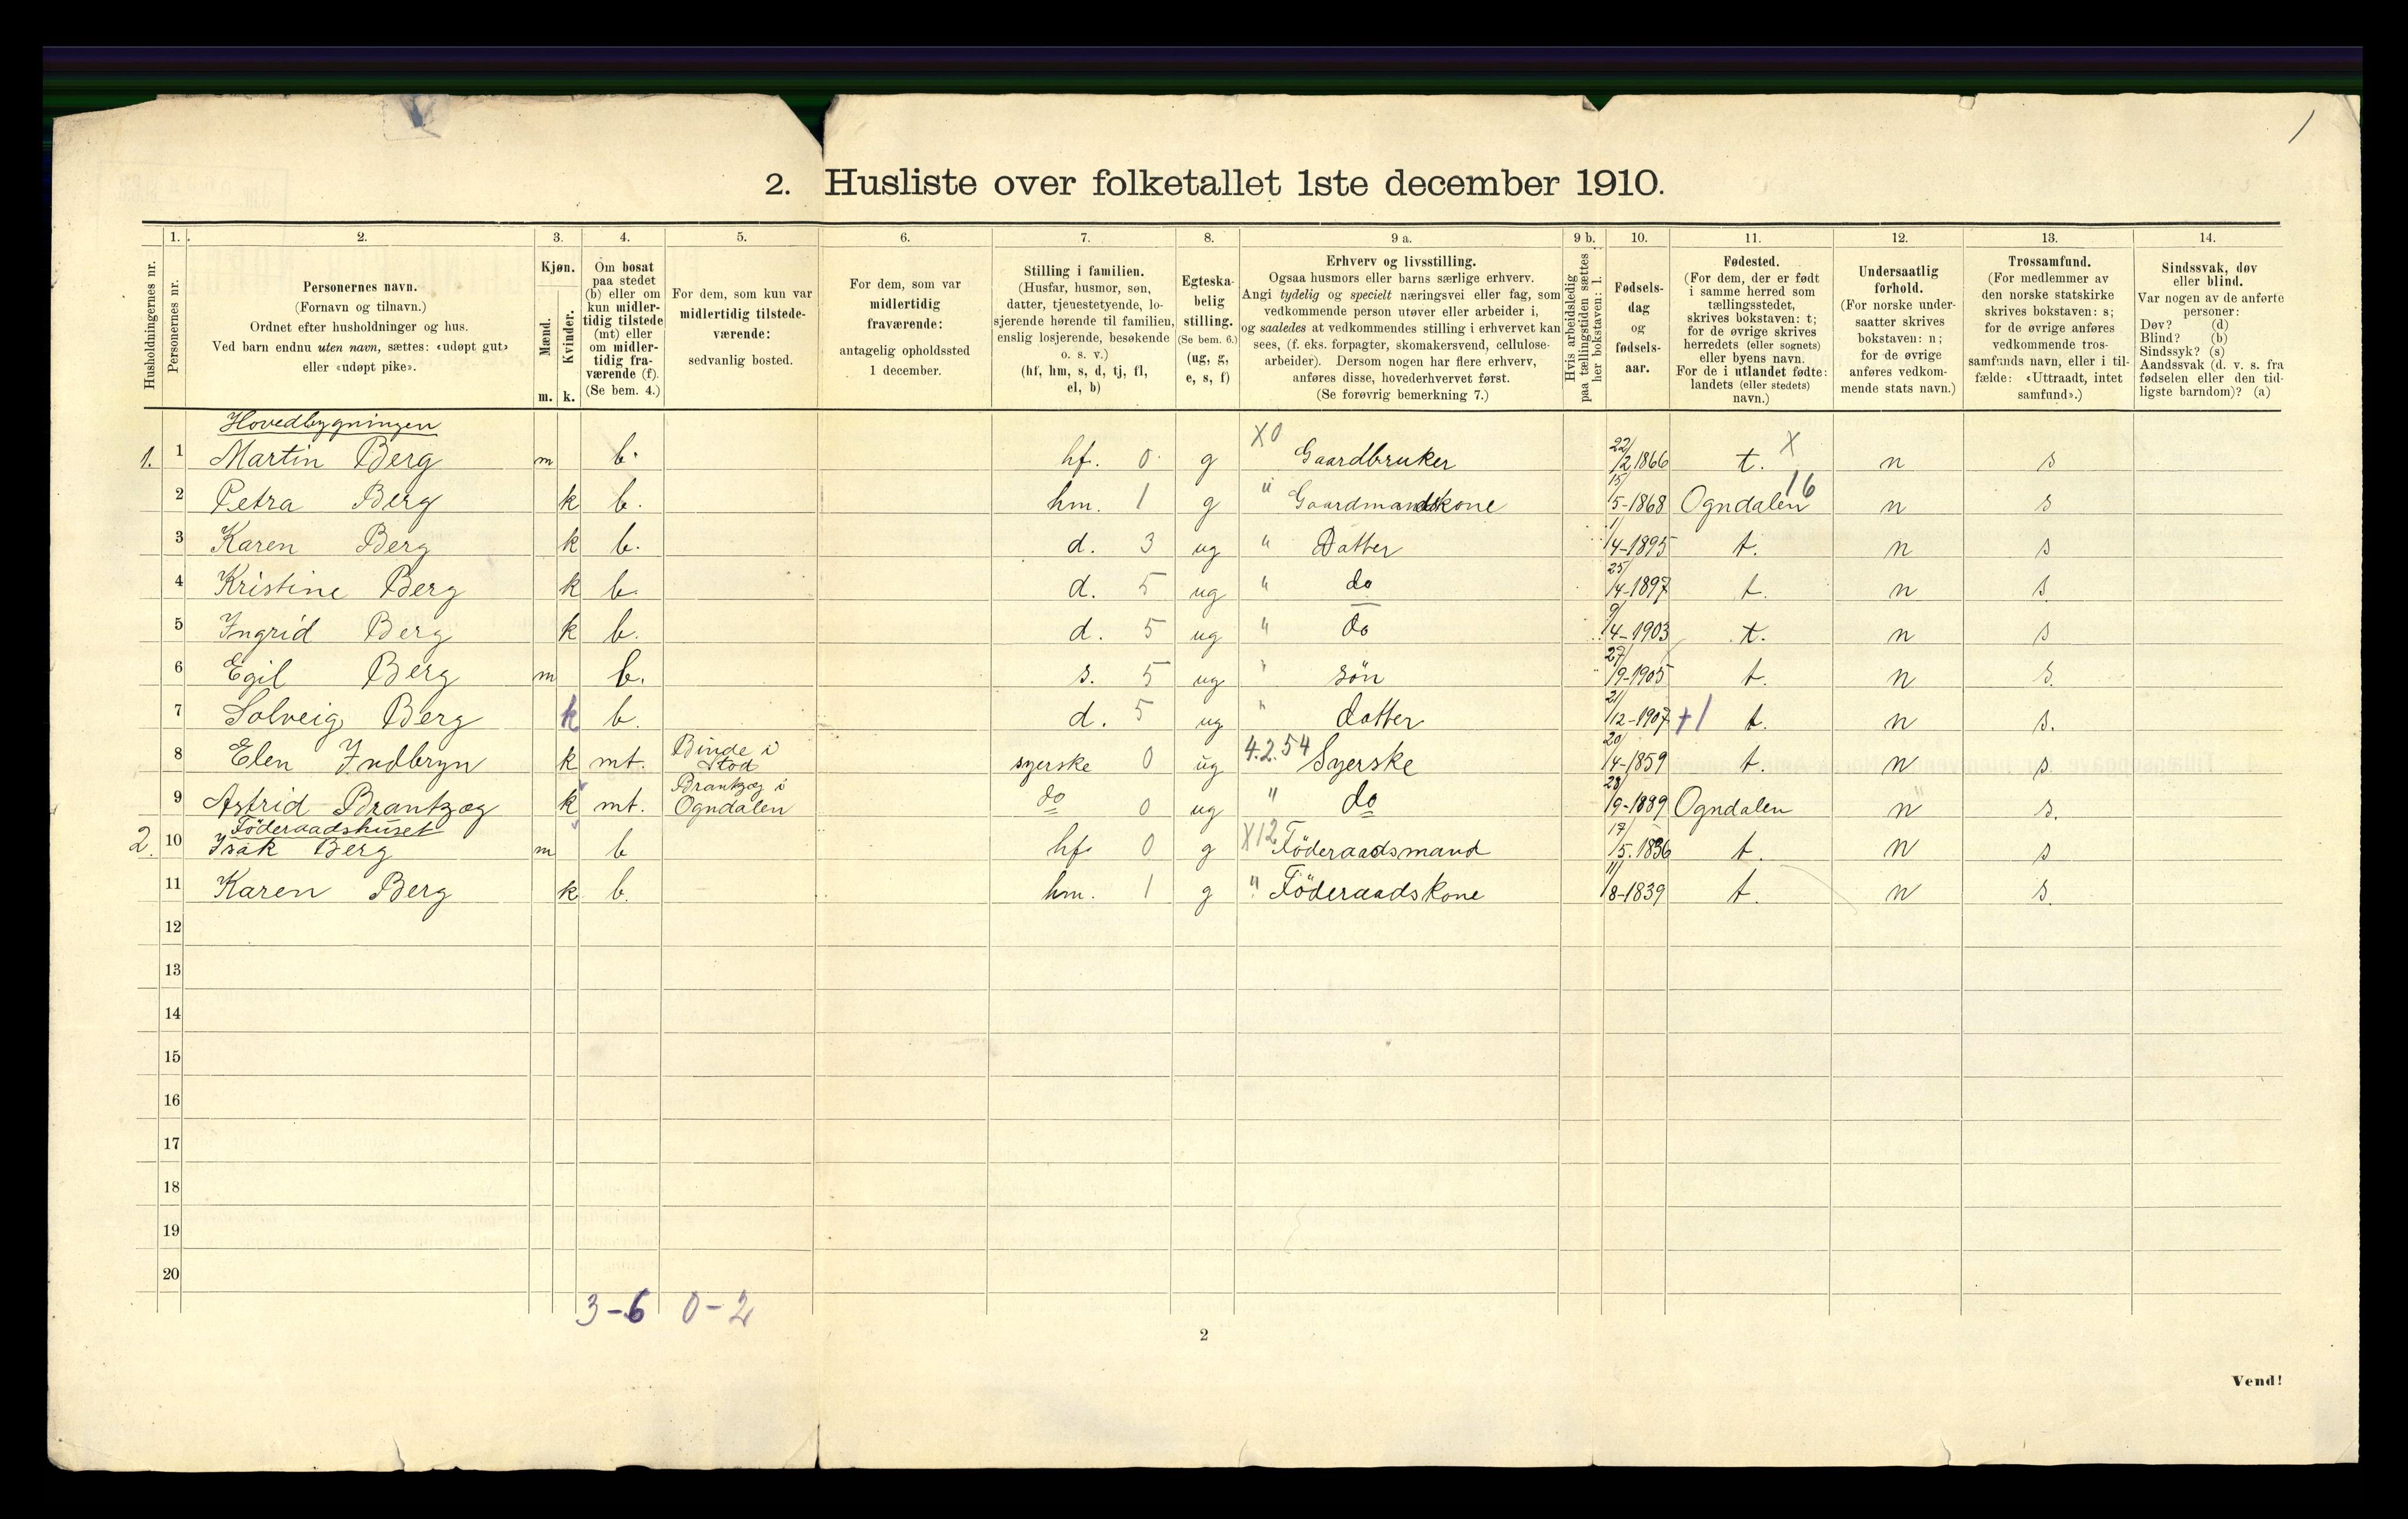 /
2. Husliste over folketallet 1ste december 1910.
Husholdningernes nr.
1. Personernes nr.
2. Personernes navn.
(Fornavn og tilnavn.)
Ordnet efter husholdninger og hus.
Ved barn endnu uten navn, sættes: «udøpt gut»
eller «udøpt pike».
3. Kjøn.
Mænd. m.
Kvinder. k.
4. Om bosat
paa stedet
(b) eller om
kun midler-
tidig tilstede
(mt) eller
om midler-
tidig fra-
værende (f).
(Se bem. 4.)
5. For dem, som kun var
midlertidig tilstede-
værende:
sedvanlig bosted.
6. For dem, som var
midlertidig
fraværende:
antagelig opholdssted
1 december.
7. Stilling i familien.
(Husfar, husmor, søn,
datter, tjenestetyende, lo-
sjerende hørende til familien,
enslig losjerende, besøkende
o. s. v.)
(hf, hm, s, d, tj, fl,
el, b)
8. Egteska-
belig
stilling.
(Se bem. 6.)
(ug, g,
e, s, f)
9 a. Erhverv og livsstilling.
Ogsaa husmors eller barns særlige erhverv.
Angi tydelig og specielt næringsvei eller fag, som
vedkommende person utøver eller arbeider i,
og saaledes at vedkommendes stilling i erhvervet kan
sees, (f. eks. forpagter, skomakersvend, cellulose-
arbeider). Dersom nogen har flere erhverv,
anføres disse, hovederhvervet først.
(Se forøvrig bemerkning 7.)
9 b. Hvis arbeidsledig
paa tællingstiden sættes
her bokstaven: l.
10. Fødsels-
dag
og
fødsels-
aar.
11. Fødested.
(For dem, der er født
i samme herred som
tællingsstedet,
skrives bokstaven: t;
for de øvrige skrives
herredets (eller sognets)
eller byens navn.
For de i utlandet fødte:
landets (eller stedets)
navn.)
12. Undersaatlig
forhold.
(For norske under-
saatter skrives
bokstaven: n;
for de øvrige
anføres vedkom-
mende stats navn.)
13. Trossamfund.
(For medlemmer av
den norske statskirke
skrives bokstaven: s;
for de øvrige anføres
vedkommende tros-
samfunds navn, eller i til-
fælde: «Uttraadt, intet
samfund».)
14. Sindssvak, døv
eller blind.
Var nogen av de anførte
personer:
Døv? (d)
Blind? (b)
Sindssyk? (s)
Aandssvak (d. v. s. fra
fødselen eller den tid-
ligste barndom)? (a)
Hovedbygningen
1. 1 Martin Berg m b. hf. 0 g X0 Gaardbruker 22/2 1866 t. X n s
2 Petra Berg k b. hm. 1 g " Gaardmandskone 15/5-1868 Ogndalen 16 n s
3 Karen Berg k b. d. 3 ug " Datter 1/4-1895 t. n s
4 Kristine Berg k b. d. 5 ug " do 25/4-1897 t. n s
5 Ingrid Berg k b. d. 5 ug " do 9/4-1903 t. n s
6 Egil Berg m b. s. 5 ug " søn 27/9-1905 t. n s.
7 Solveig Berg k b. d. 5 ug " datter 21/12-1907 +1 t. n s.
8 Elen Indbryn k mt. Binde i Stod syerske 0 ug 4.2.54 Syerske 20/4-1859 t. n s
9 Astrid Brantzæg k mt. Brantzæg i Ogndalen do 0 ug " do 28/9-1889 Ogndalen n s.
Föderaadshuset
2. 10 Isak Berg m b hf 0 g X12 Föderaadsmand 17/5.1836 t. n s
11 Karen Berg k b. hm. 1 g " Föderaadskone 11/8-1839 t. n s.
12
13
14
15
16
17
18
19
20
3-6 0-2
2
Vend!